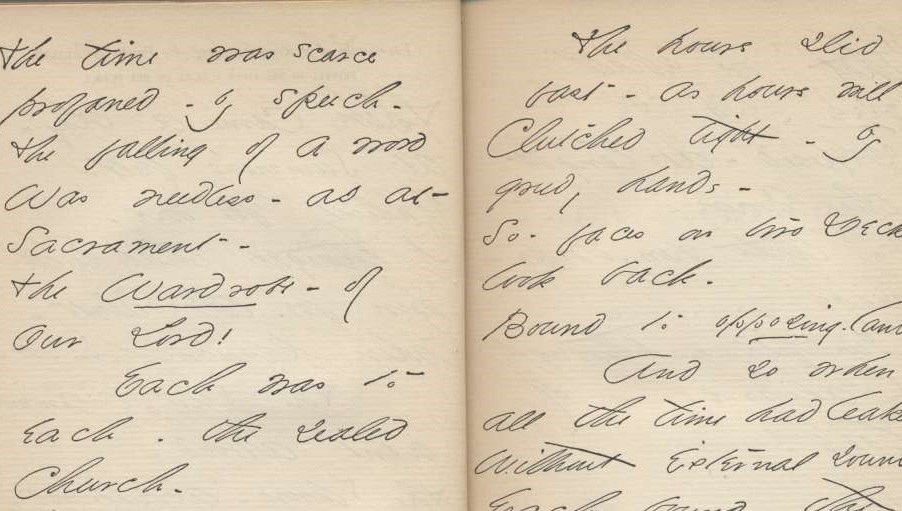 The time was scarce
profaned - by speech -
The falling of a word
Was needless - as at
Sacrament -
The Wardrobe - of
Our Lord!
Each was to
Each . The sealed
Church -
The hours slid
fast - as hours will
Clutched tight - by
greedy hands -
So - faces on two Decks
look back -
Bound to opposing
And so when
all the time had leaked
Without External Sound
Each bound the